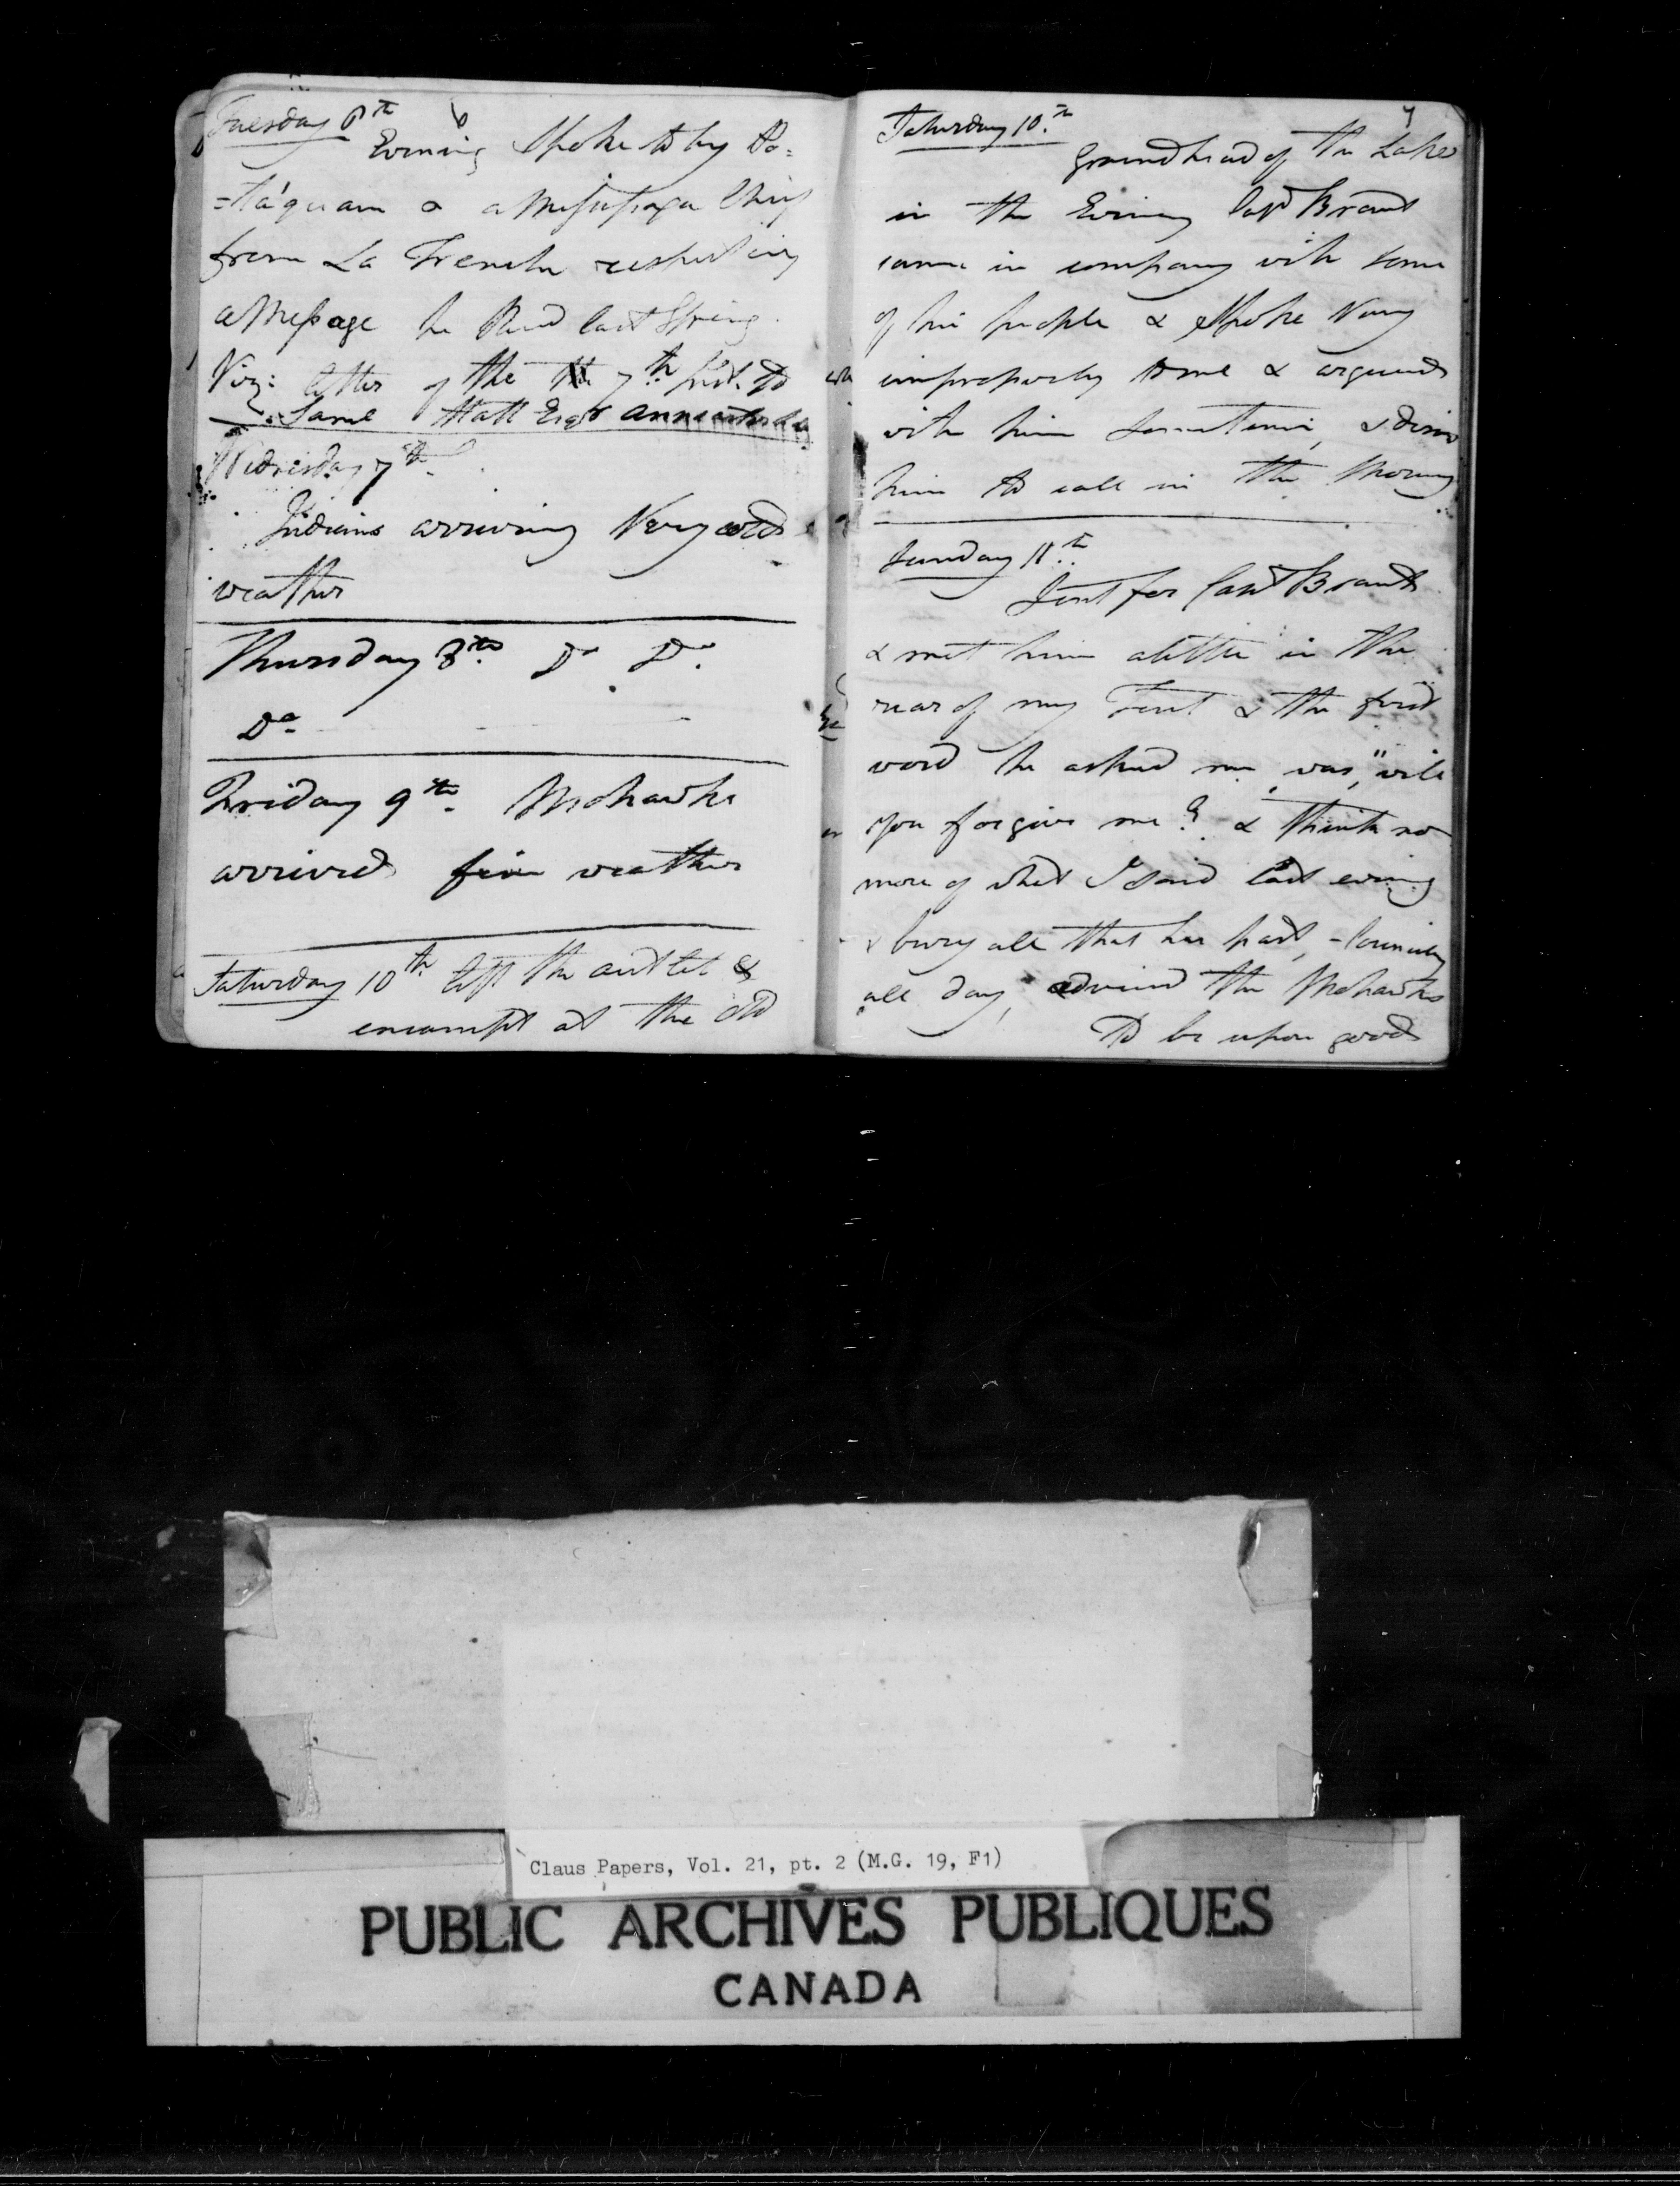 Tuesday 6th
6
Evening Spoke to by
=ta'quam & a Messissaga Chief
from La Trenche respecting
a Message he Recd last Spring.
Viz: letter of the 7th
Saml Hatt Esqr
Wednesday 7th
Indians arriving Very cold
weather
Thursday 8th. Do Do.
Do
Friday 9th. Mohawks
arrived fine weather
Saturday 10th left the outlet &
encampt at the old
7
Saturday 10.th
ground head of the Lake
in the Evening Capt Brant
came in company with some
of his people & Spoke Very
improperly to me & argued
with him sometime, & desired
him to call in the Morning
Sunday 11th.
Sent for Capt Brant
& met him a little in the
rear of my Tent & the first
word he asked me, was, "will
you forgive me? & think no
more of what I said last evening
& bury all that has past, -
all day, advised the Mohawks
to be upon good
Claus Papers, Vol. 21, pt. 2 (M.G. 19, F1)
PUBLIC ARCHIVES PUBLIQUES
CANADA